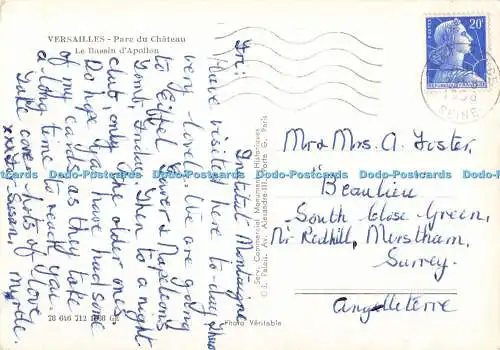 VERSAILLES - Parc du Château
Le Bassin d'Apollon
Institut Montaigne
Hi!
Have visited here to-day, Thurs
very lovely. We are going
to Eiffel Tower & Napoleons
Tomb, Friday. Then to a night
club, only the older ones.
Do hope you have had some
of my cards, as they take
a long time to reach you.
Take care - lots of love
Susan, Myrtle.
78 646 712 1008 GE
Photo Véritable
20F
POSTES
REPUBLIQUE FRANÇAISE
1958
SEINE
Mr & Mrs. A. Foster,
"Beaulieu"
South Close Green,
Nr Redhill, Merstham,
Surrey.
Angleterre
Dodo-Postcards Dodo-Postcards Dodo-Postcards Dodo-Postcards Dodo-Postcards Dodo-Postcards